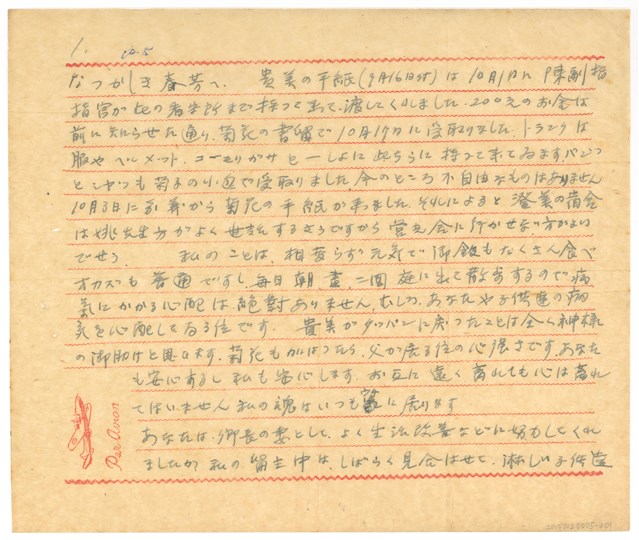 1.
なつかしき春芳へ. 貴美の手紙(9月16日付)は10月1日に陳副指
指官が此の看守所まで持って来て、渡してくれました. 200元のお金は
前に知らせた通り、菊花の書留で10月17日に受取りました. トランクは
服やヘルメット、コーモリがさと一しよに此ちらに持って来てゐます. パンツ
とシャツも菊子の小包で受取りました 今のところ不自由なものはありません
10月3日に から菊花の手紙が来ました. それによると 澄美の宿舎
は姚先生方がよく世話するさうですから 営 会に行かせない方がよい
でせう. 私のことは、相変らず元気で御飯もたくさん食べ
オカズも普通ですし、毎日朝昼二回庭に出て散歩するので病
気にかかる心配は絶対ありません. むしろ、あなたや子供達の病
気を心配してゐる位です. 貴美がタッパンに戻ったことは全く神様
の御助けと思ひます. 菊花もがんばつたら、父が居る位の心強さです. あなた
も安心するし 私も安心します. お互に遠く離れても心は離れ
てはいません 私の魂はいつも家に居ります
あなたは、郷長の妻として、よく生活改善などに努力してくれ
ましたが 私の留主中は、しばらく見合はせて、淋しい子供達
Par Avion
2015.025.0005-0001